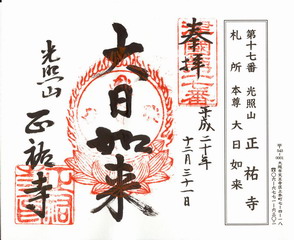 奉拝
平成二十年
十二月三十一日
大日如来
光照山
正祐寺
第十七番 光照山 正祐寺
札所本尊 大日如来